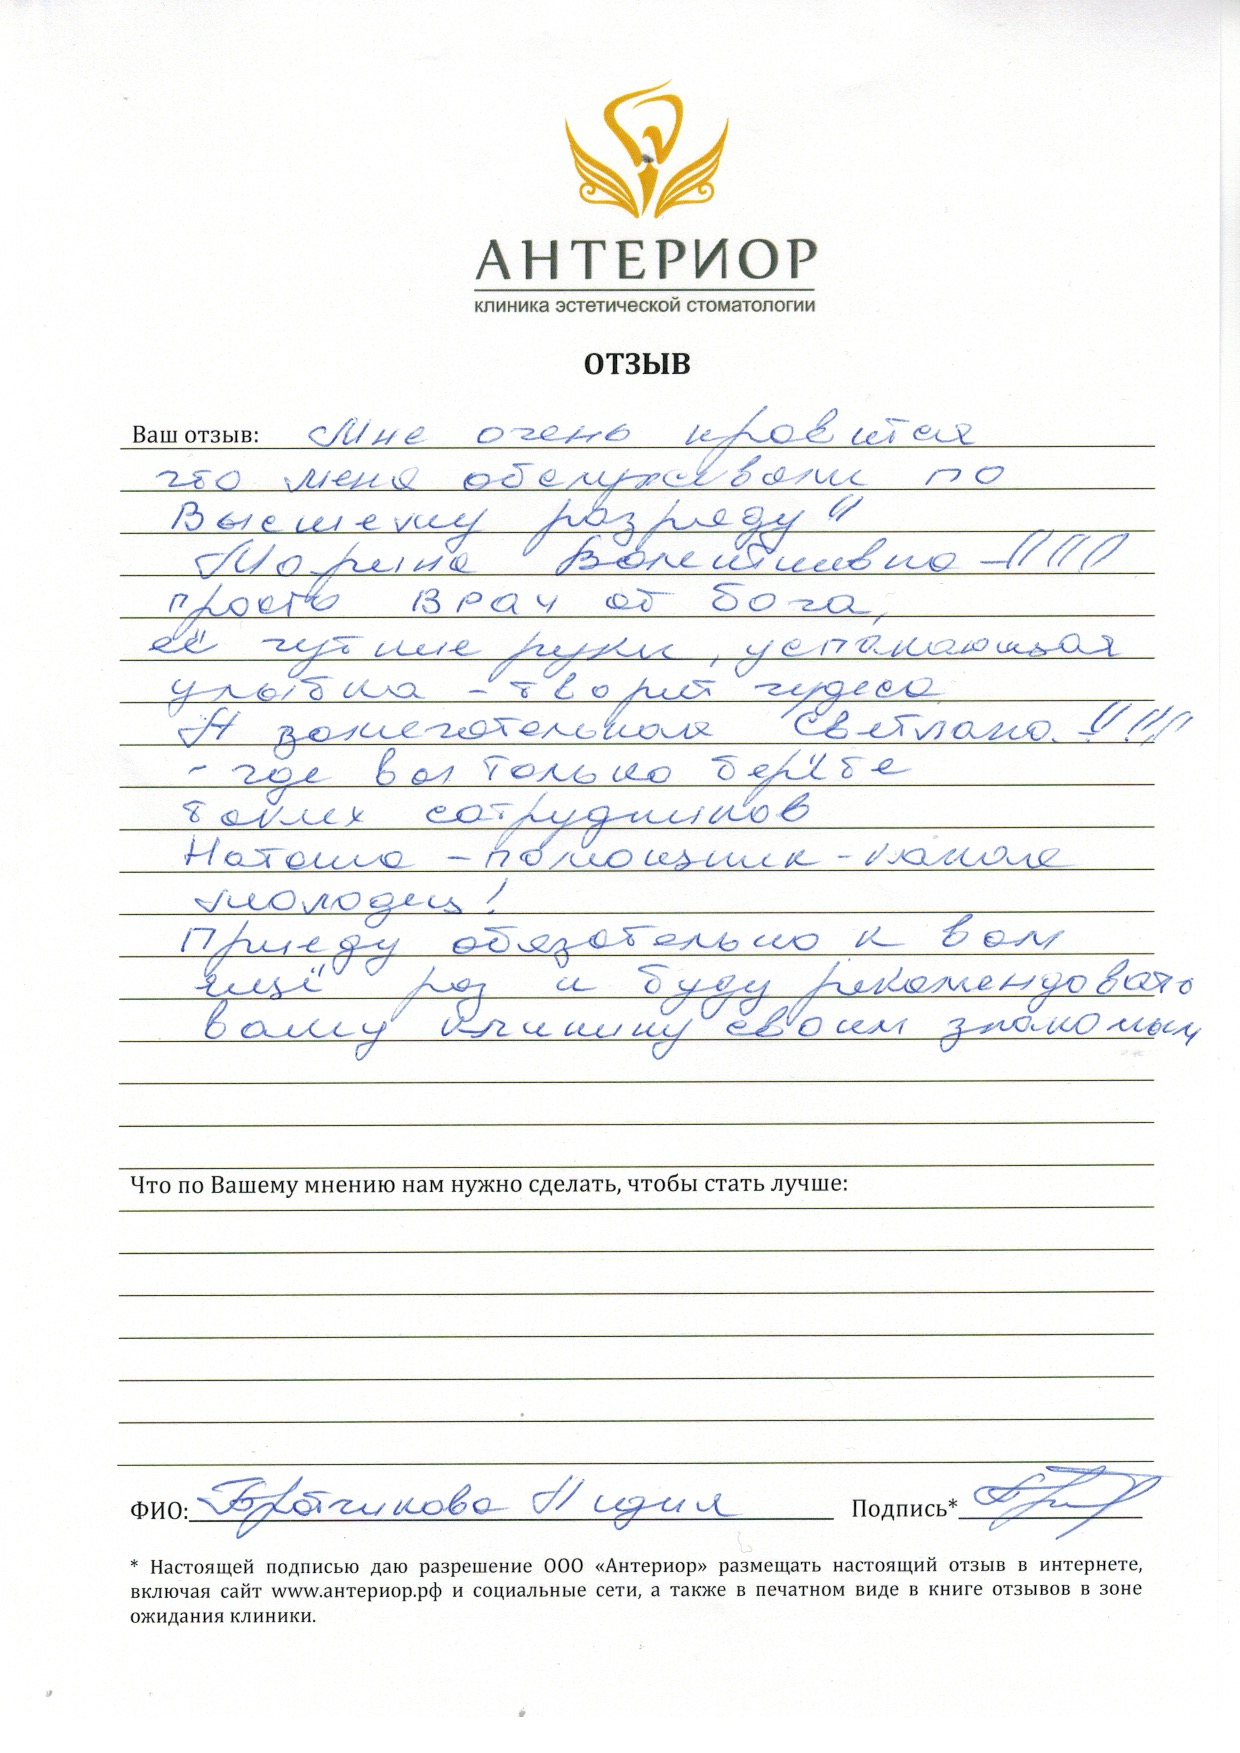 АНТЕРИОР
клиника эстетической стоматологии
ОТЗЫВ
Ваш отзыв: Мне очень нравится
что меня обслуживали по
Высшему разряду!!
Марина - !!!
просто Врач от бога,
её чуткие руки, успакающая
улыбка - творит чудеса
А замечательная Светлана. !!!!
- где вы только берёте
таких сатрудников
Наташа - помощник - какая
молодец!
Приеду обязательно к вам
ещё раз и буду рекомендовать
вашу клинику своим знакомым
Что по Вашему мнению нам нужно сделать, чтобы стать лучше:
ФИО: Братчикова Лидия Подпись*
* Настоящей подписью даю разрешение ООО «Антериор» размещать настоящий отзыв в интернете,
включая сайт www.антериор.рф и социальные сети, а также в печатном виде в книге отзывов в зоне
ожидания клиники.